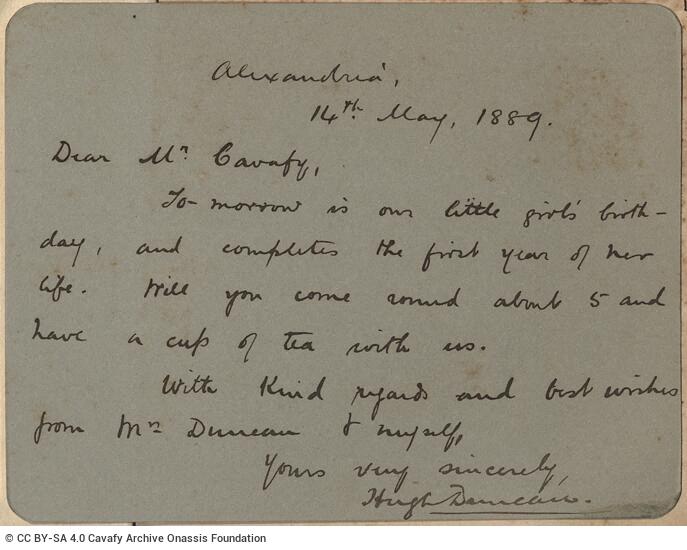 Alexandria,
14th May, 1889.
Dear Mr Cavafy,
To-morrow is our little girl's birth-
day, and completes the first year of her
life. Will you come round about 5 and
have a cup of tea with us.
With kind regards and best wishes
from Mrs Duncan & myself,
Yours very sincerely,
Hugh Duncan.
© CC BY-SA 4.0 Cavafy Archive Onassis Foundation